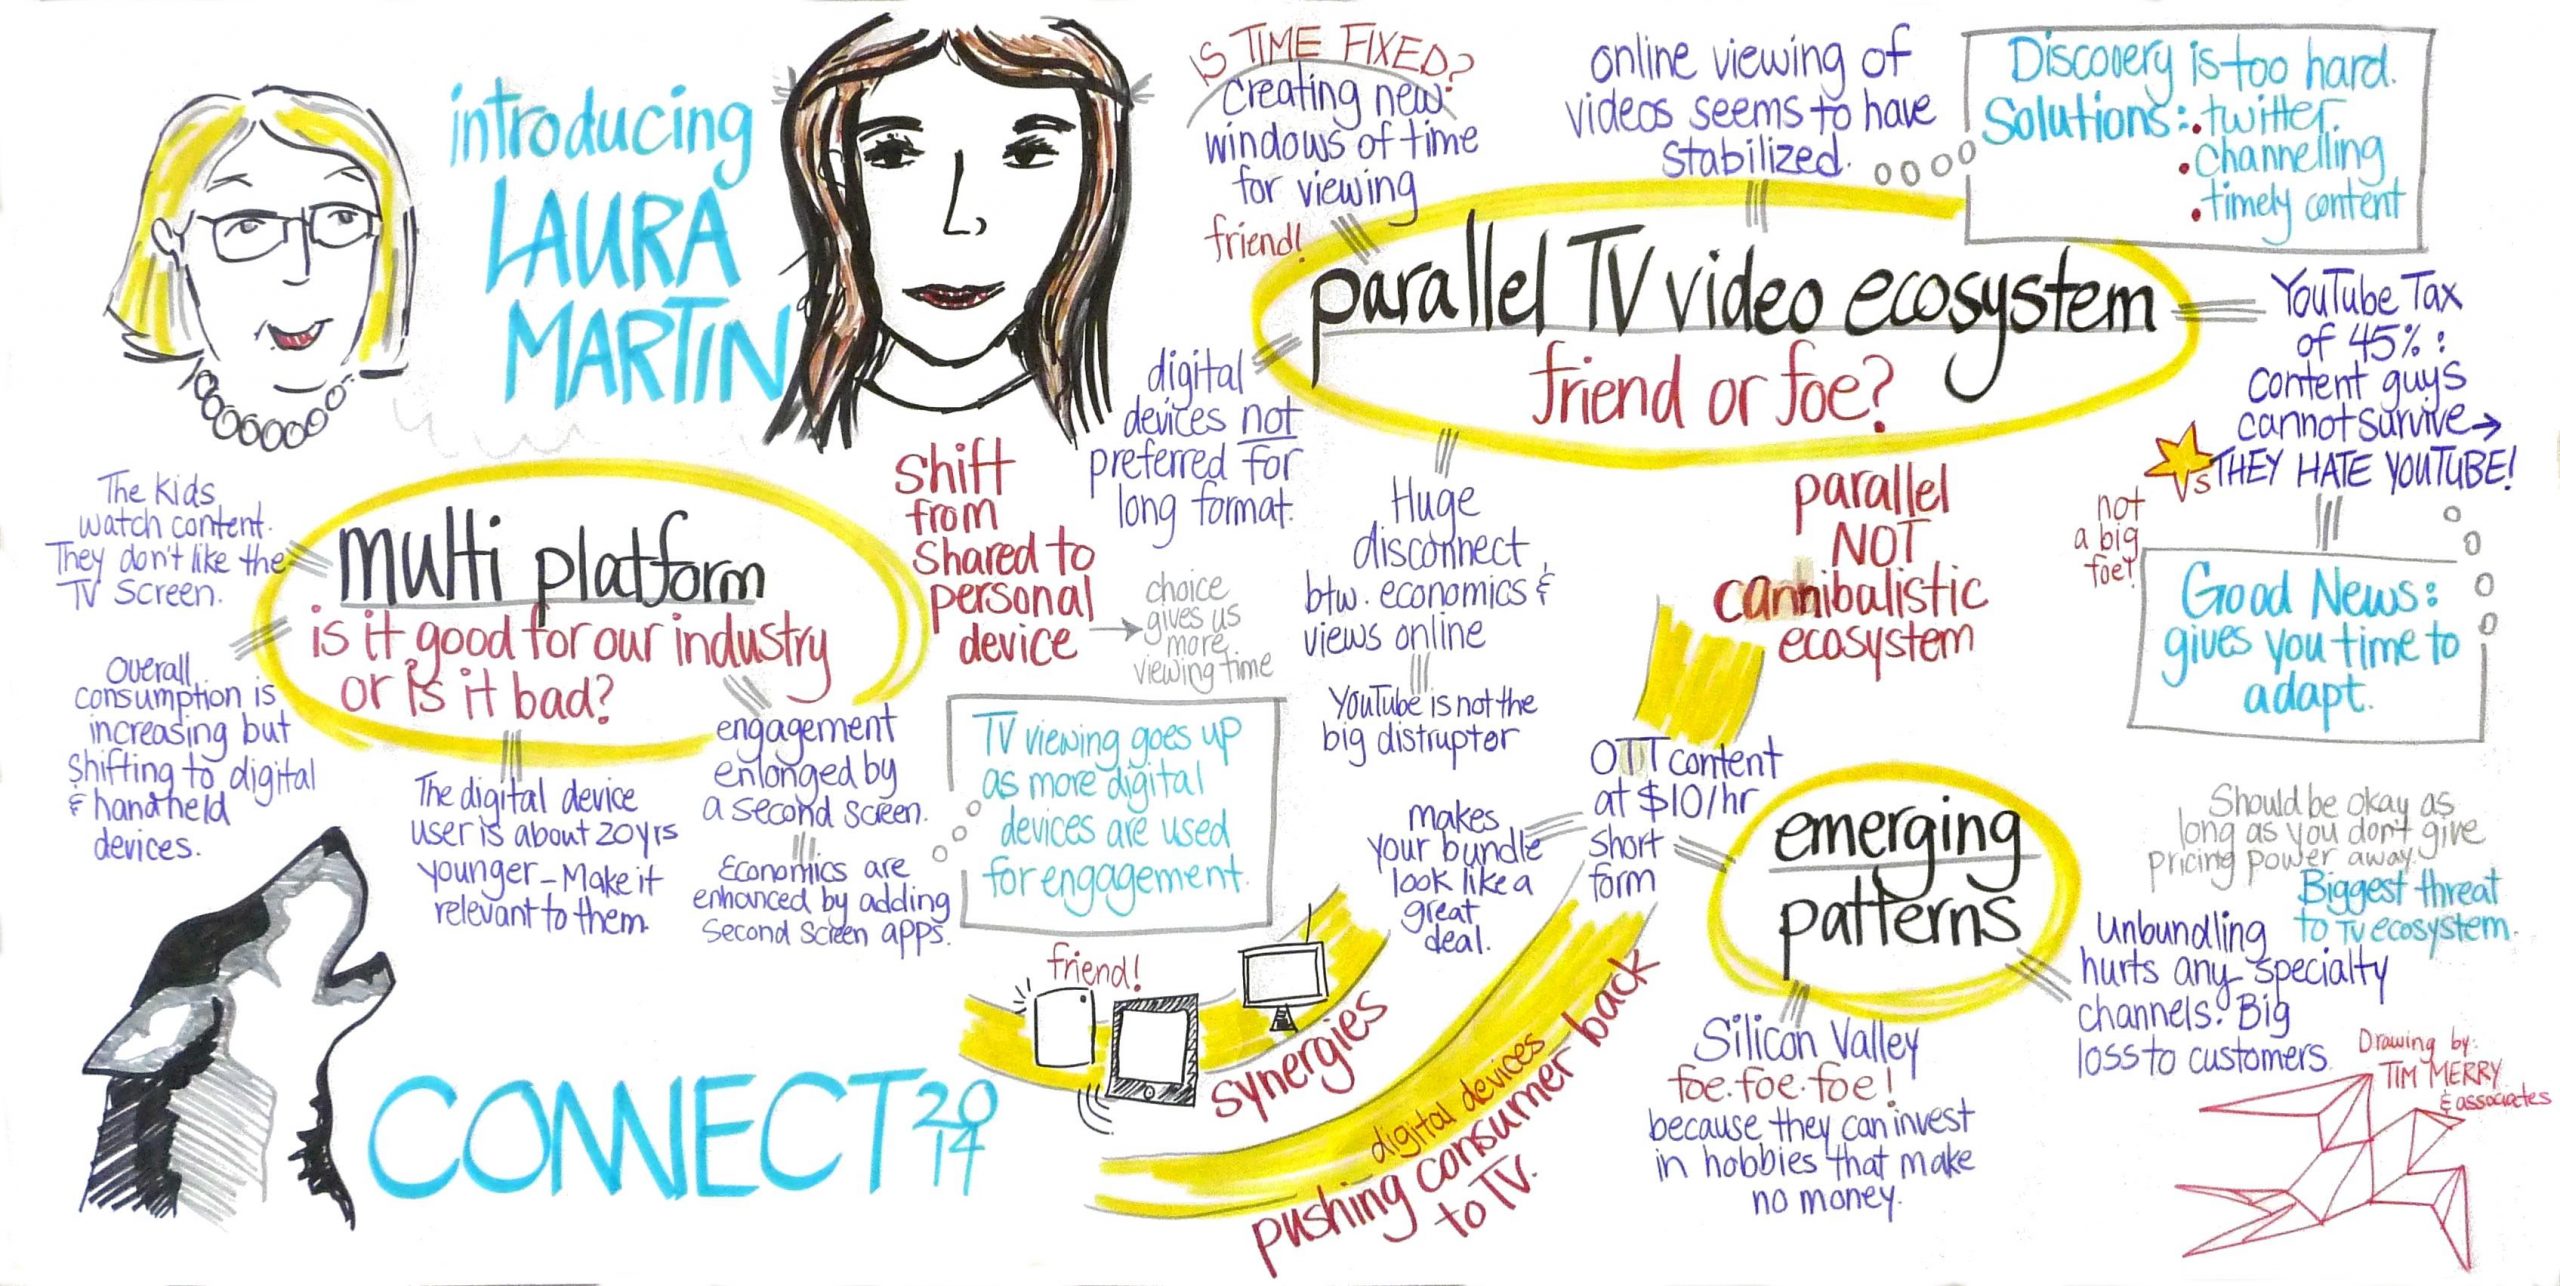 introducing
LAURA
MARTIN
The Kids
watch content.
They don't like the
TV Screen.
multi platform
is it good for our industry
or is it bad?
Overall
consumption is
increasing but
shifting to digital
& handheld
devices.
The digital device
user is about 20yrs
younger - Make it
relevant to them.
engagement
enlonged by
a second screen.
Economics are
enhanced by adding
Second Screen apps.
Shift
from
Shared to
personal
device
choice
gives us
more
viewing time
TV viewing goes up
as more digital
devices are used
for engagement.
CONNECT 2014
IS TIME FIXED?
Creating new
windows of time
for viewing
friend!
online viewing of
videos seems to have
stabilized.
Discovery is too hard.
Solutions: • twitter
• Channelling
• timely content
parallel TV video ecosystem
friend or foe?
digital
devices not
preferred for
long format.
Huge
disconnect
btw. economics &
views online
YouTube is not the
big distruptor
parallel
NOT
cannibalistic
ecosystem
YouTube Tax
of 45% :
content guys
cannot survive →
THEY HATE YOUTUBE!
vs
not
a big
foe!
Good News:
gives you time to
adapt.
friend!
synergies
digital devices
pushing consumer back
to TV.
makes
your bundle
look like a
great
deal.
OTT content
at $10/hr
short
form
emerging
patterns
Silicon Valley
foe. foe. foe!
because they can invest
in hobbies that make
no money.
Should be okay as
long as you don't give
pricing power away.
Biggest threat
to TV ecosystem.
Unbundling
hurts any specialty
channels. Big
loss to customers.
Drawing by:
TIM MERRY
& associates